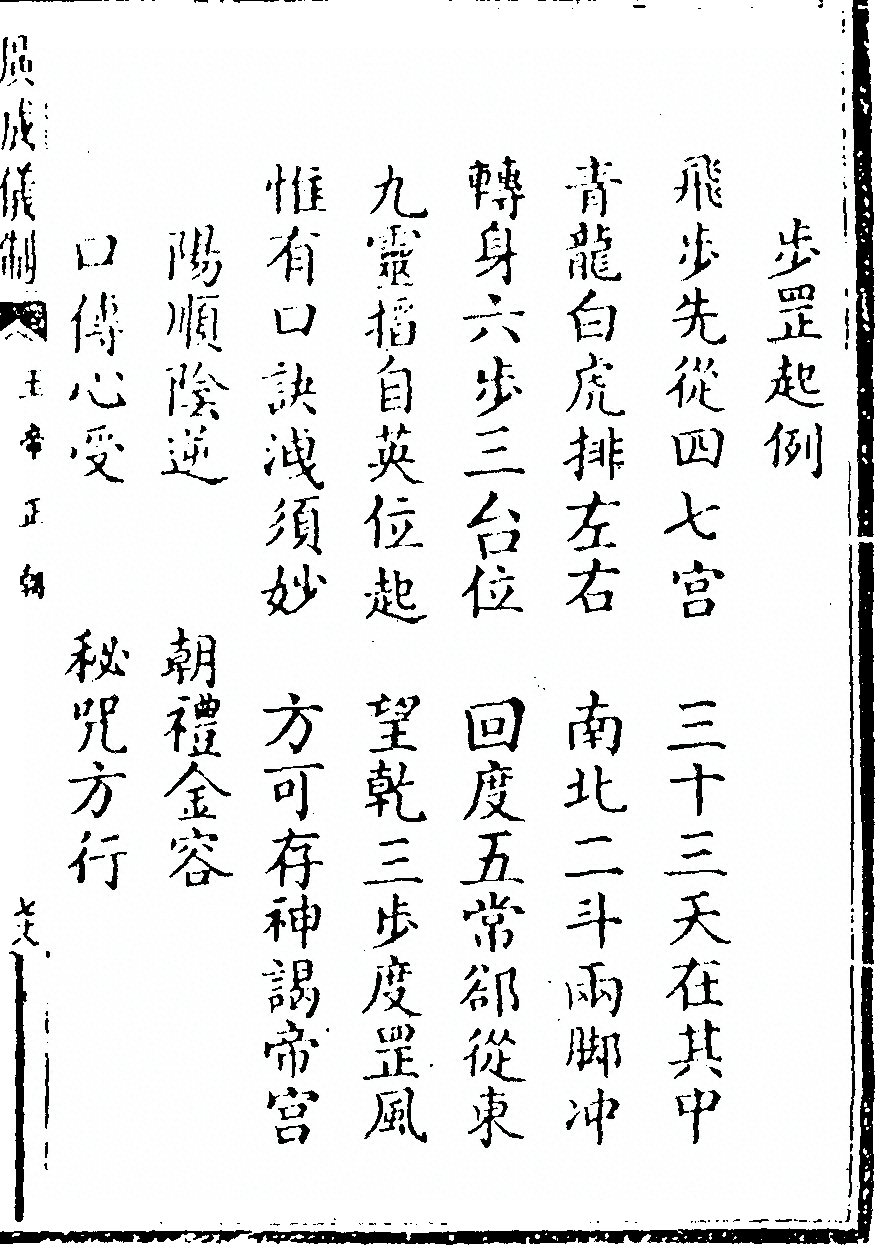 步罡起例
飛步先從四七宮　三十三天在其中
青龍白虎排左右　南北二斗兩脚冲
轉身六步三台位　回度五常郤從東
九靈搯自英位起　望乾三步度罡風
惟有口訣洩須妙　方可存神謁帝宮
陽順陰逆　朝禮金容
口傳心受　秘咒方行
廣成儀制　玉帝正朝　七